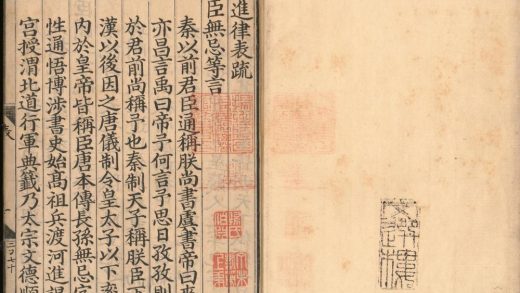 進律表疏
臣無忌等言
秦以前君臣通稱朕尚書虞書帝曰來
亦昌言禹曰帝予何言予思日孜孜則
於君前尚稱予也秦制天子稱朕臣下
漢以後因之唐儀制令皇太子以下率
內於皇帝皆稱臣唐本傳長孫無忌字
性通悟博涉書史始髙祖兵渡河進謁
宮授渭北道行軍典籤乃太宗文德順